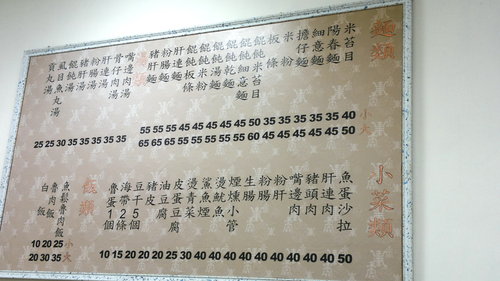 麵類
米苔目
陽春麵
細意麵
擔仔麵
米粉
板條
餛飩米苔目
餛飩細意麵
餛飩乾麵
餛飩湯麵
餛飩米粉
餛飩板條
肝連麵
粉腸麵
豬肝麵
55 55 55 45 45 45 45 45 50 35 35 35 35 35 40 小
65 65 65 55 55 55 55 55 60 45 45 45 45 45 50 大
嘴邊肉湯
骨仔肉湯
肝連湯
粉腸湯
豬肝湯
餛飩湯
虱目魚丸湯
貢丸湯
25 25 30 35 35 35 35 35
小菜類
魚蛋沙拉
肝連
豬頭肉
嘴邊肉
粉肝
粉腸
生腸
煙燻小管
燙魷魚
鯊魚煙
燙青菜
皮蛋豆腐
油豆腐
豬皮
豆干2個
海帶5條
魯蛋1個
10 15 20 20 20 25 30 40 40 40 40 40 40 40 40 40 50
飯類
魚鬆魯肉飯
魯肉飯
白飯
10 20 25 小
20 30 35 大